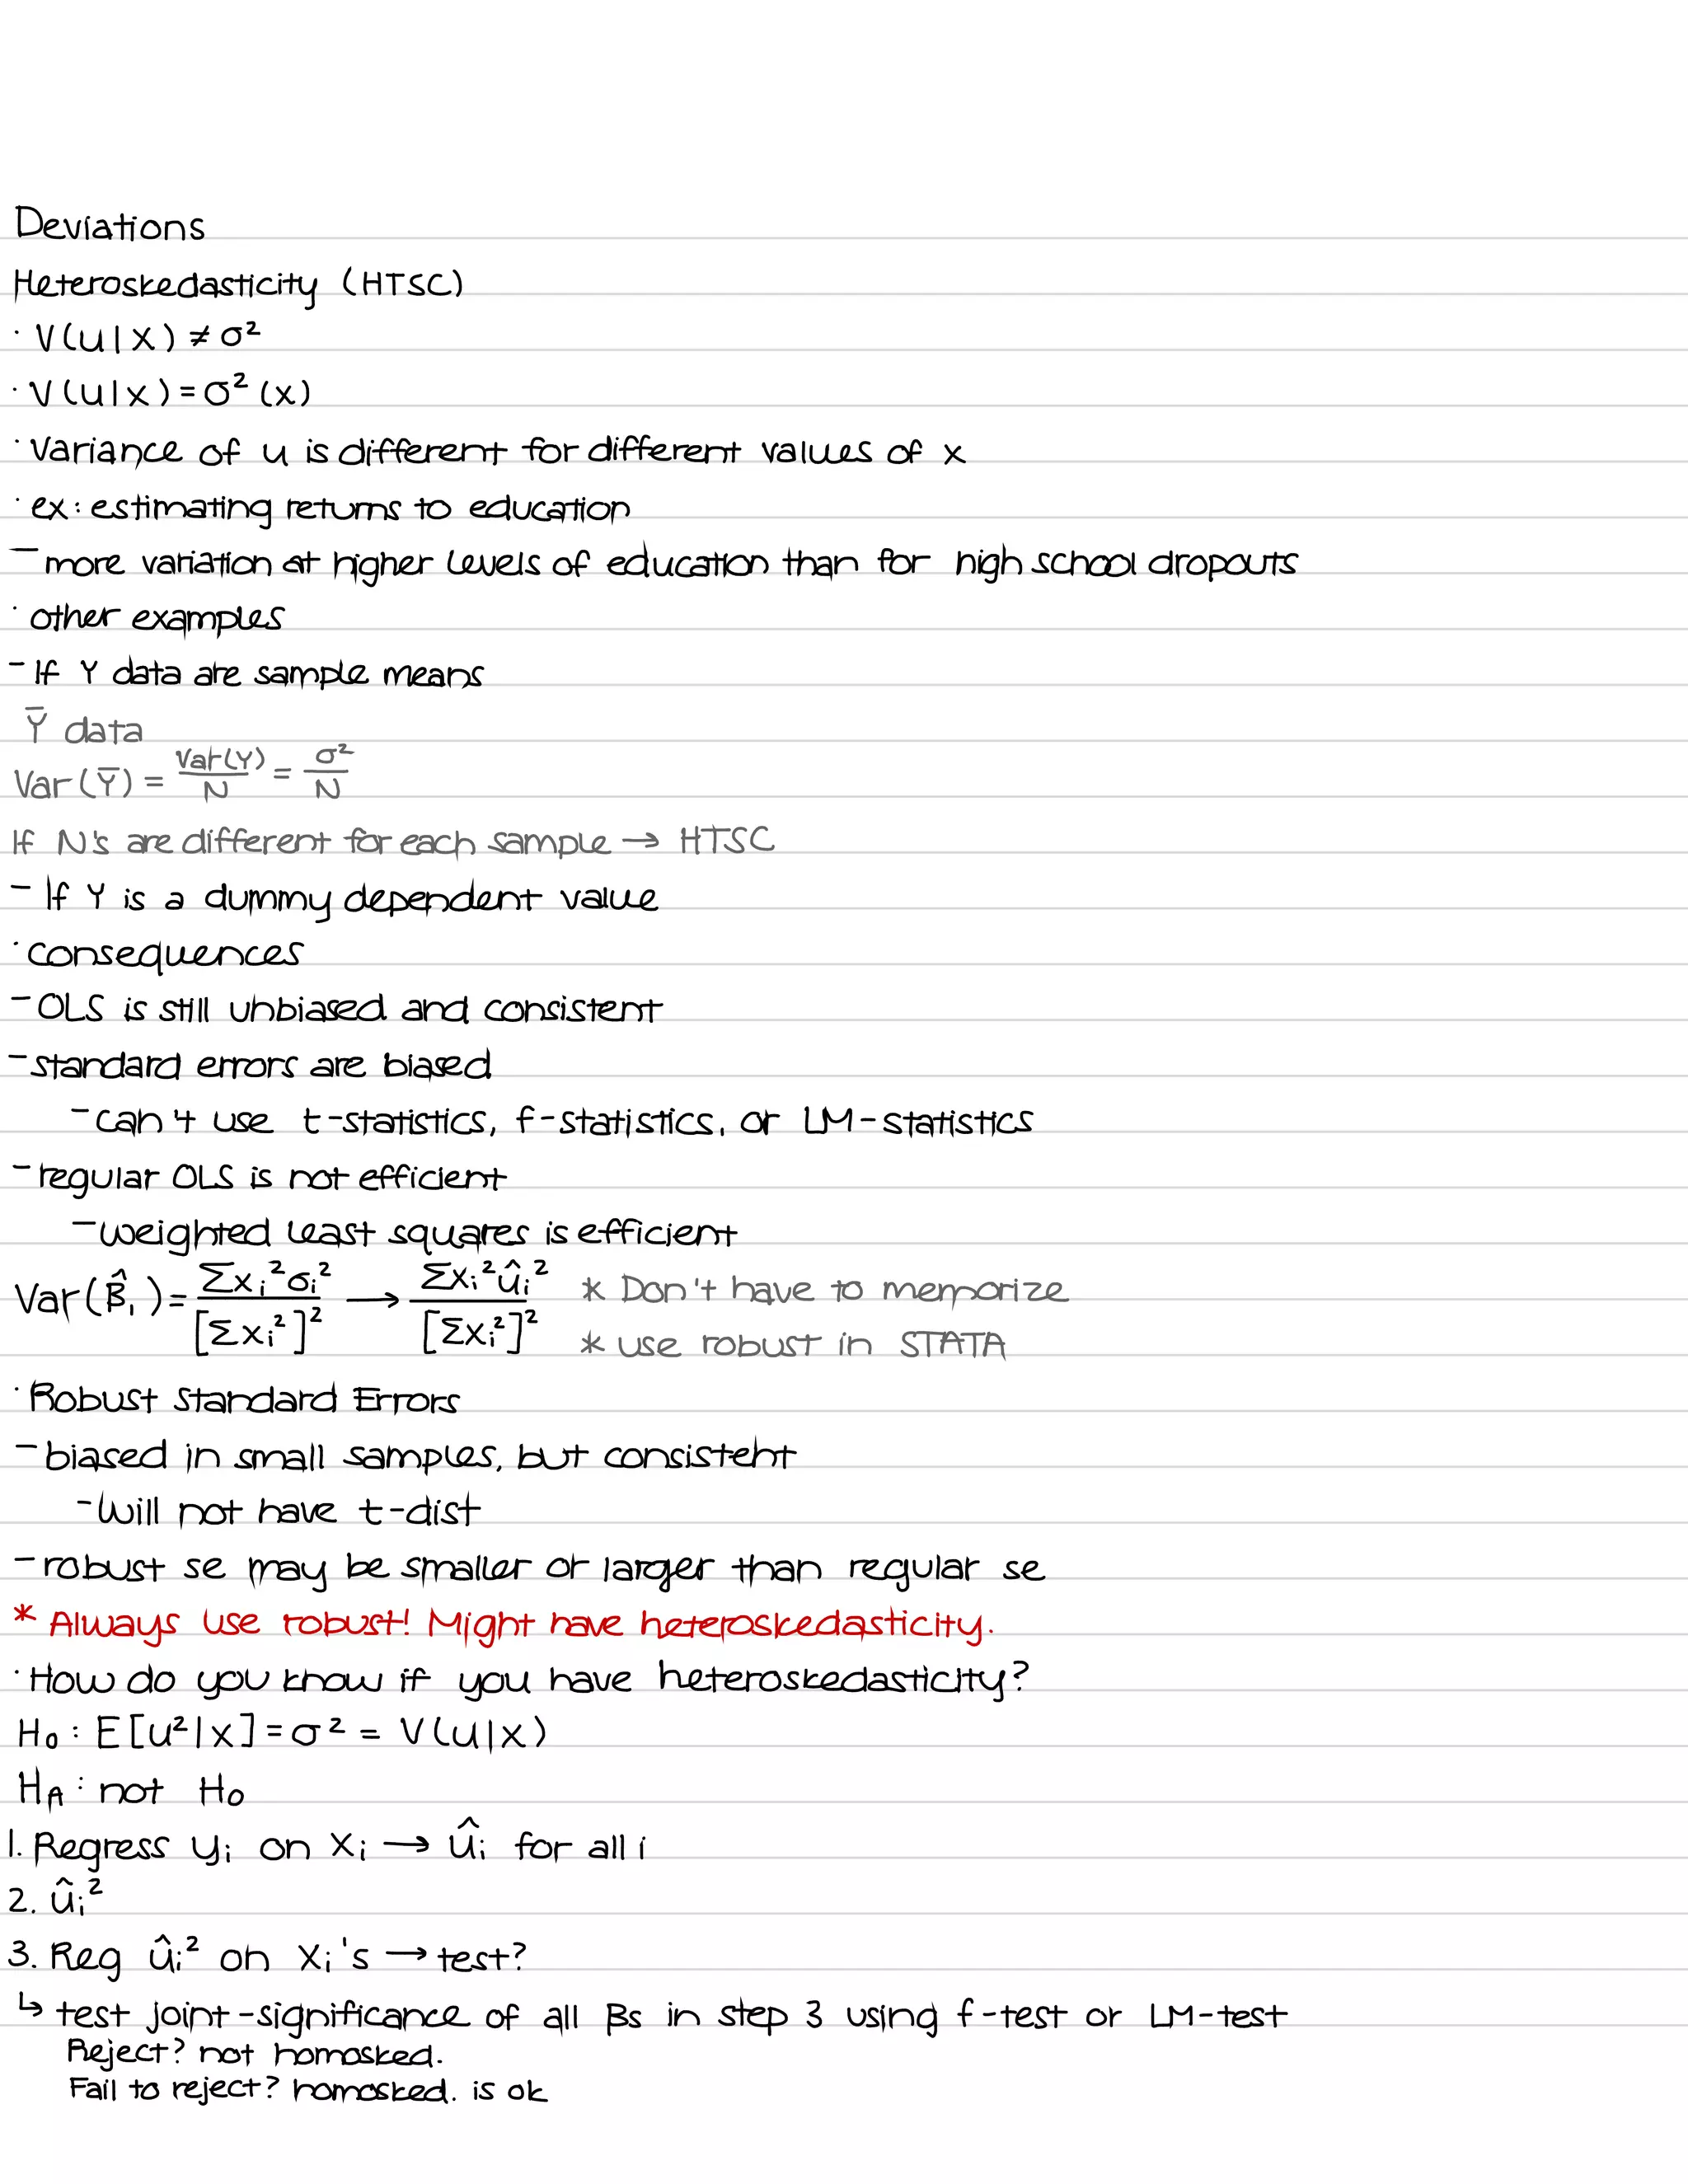 Deviations
Heteroskedasticity (HTSC)
· V(u|X) ≠ σ²
· V(u|x) = σ²(x)
· Variance of u is different for different values of x
· ex: estimating returns to education
- more variation at higher levels of education than for high school dropouts
· other examples
- If Y data are sample means
Ȳ data
Var(Ȳ) = Var(Y)/N = σ²/N
If N's are different for each sample → HTSC
- If Y is a dummy dependent value
· consequences
- OLS is still unbiased and consistent
- standard errors are biased
- can't use t-statistics, f-statistics, or LM-statistics
- regular OLS is not efficient
- weighted least squares is efficient
Var(β̂₁) = Σxᵢ²σᵢ²/[Σxᵢ²]² → Σxᵢ²ûᵢ²/[Σxᵢ²]² * Don't have to memorize
* use robust in STATA
· Robust Standard Errors
- biased in small samples, but consistent
- Will not have t-dist
- robust se may be smaller or larger than regular se
* Always use robust! Might have heteroskedasticity.
· How do you know if you have heteroskedasticity?
H₀: E[u²|x] = σ² = V(u|x)
Hᴀ: not H₀
1. Regress yᵢ on xᵢ → ûᵢ for all i
2. ûᵢ²
3. Reg ûᵢ² on Xᵢ's → test?
↳ test joint-significance of all βs in step 3 using f-test or LM-test
Reject? not homosked.
Fail to reject? homosked. is ok